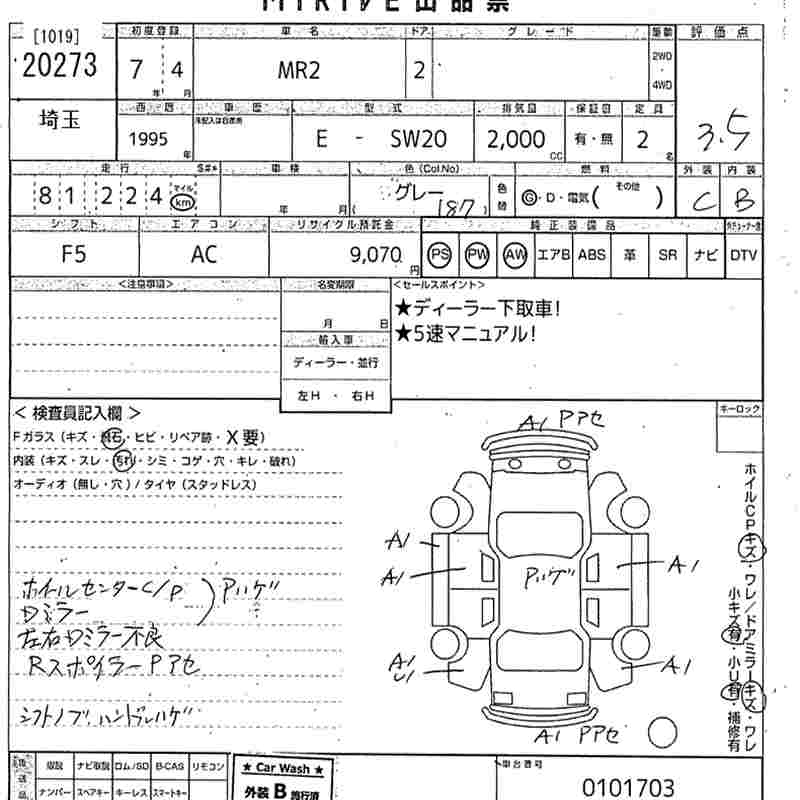 MIRIVE出品票
[1019]
20273
初度登録 車名 ドア グレード 駆動 評価点
7年 4月 MR2 2 2WD・4WD
3.5
埼玉
西暦 車歴 型式 排気量 保証書 定員
1995年 未記入は自家用 E - SW20 2,000cc 有・無 2名
走行 S#* 車検 色(Col.No) 燃料 外装 内装
81224 マイル km 年 月 グレー (187) 色替 G・D・電気( その他 ) C B
シフト エアコン リサイクル預託金 純正装備品
F5 AC 9,070円 PS PW AW エアB ABS 革 SR ナビ DTV
<注意事項> 名変期限 <セールスポイント>
★ディーラー下取車!
月 日
★5速マニュアル!
輸入車
ディーラー・並行
左H・右H
<検査員記入欄>
キーロック
Fガラス(キズ・飛石・ヒビ・リペア跡・X要)
内装(キズ・スレ・汚れ・シミ・コゲ・穴・キレ・破れ)
オーディオ(無し・穴)/タイヤ(スタッドレス)
A1 Pアセ
A1
A1
Pハゲ
A1
A1
U1
A1
A1 Pアセ
ホイールCPキズ・ワレ/ドアミラーキズ・ワレ
小キズ有・小U有・補修有
ホイールセンターC/P ) Pハゲ
Dミラー
左右Dミラー不良
RスポイラーPアセ
シフトノブ ハンドルハゲ
後送品 取説 ナビ取説 ロム/SD B-CAS リモコン
ナンバー スペアキー キーレス スマートキー
★ Car Wash ★
外装 B 施行済
車台番号
0101703